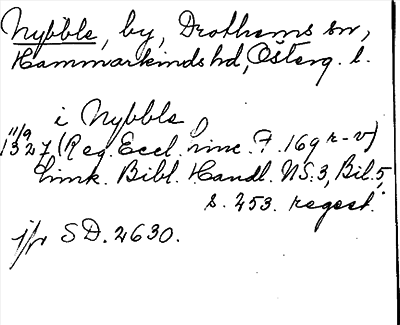 Nybble, by, Drothems sn,
Hammarkinds hd, Österg. l.
i Nybble
11/9
1327 (Reg. Eccl. Linc. F. 169 r-v)
Link. Bibl. Handl. NS:3, Bil. 5,
s. 253. regest.
jfr SD. 2630.